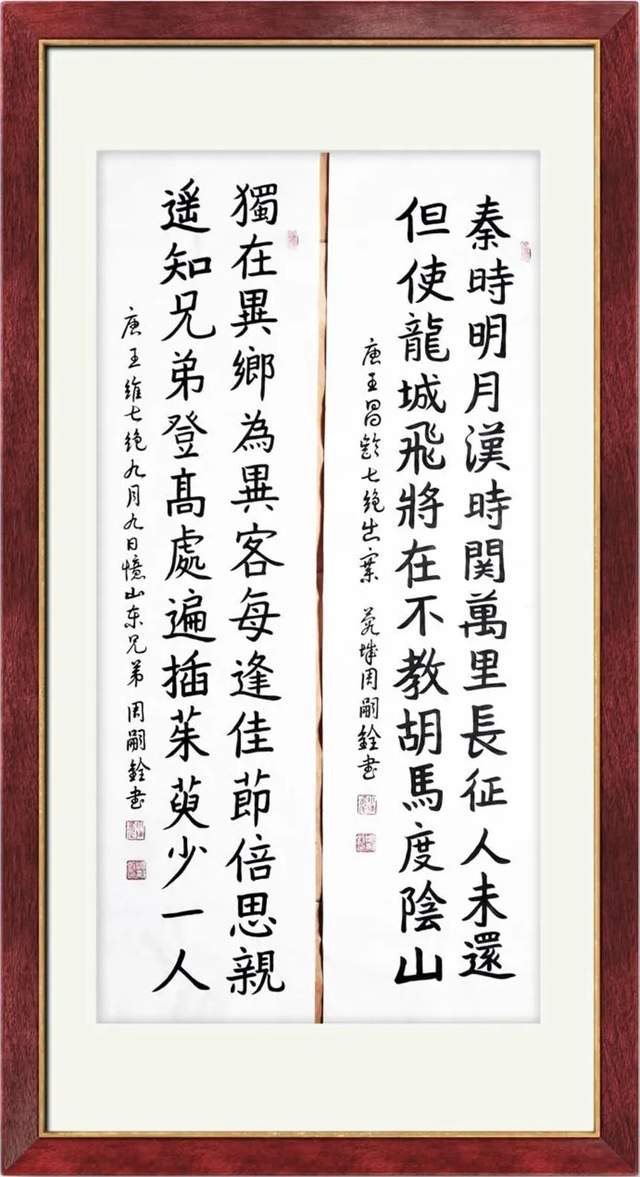 秦時明月漢時関萬里長征人未還
但使龍城飛將在不教胡馬度陰山
唐王昌齡七絕出塞 苑城周嗣銓書
獨在異鄉為異客每逢佳節倍思親
遥知兄弟登高處遍插茱萸少一人
唐王維七絕九月九日憶山东兄弟周嗣銓書